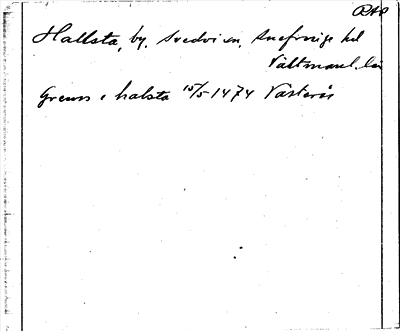 RAP
Hallsta, by, Svedvi sn, Snefringe hd
Västmanl. län
Grewss i halsta 15/5 1474 Västerås